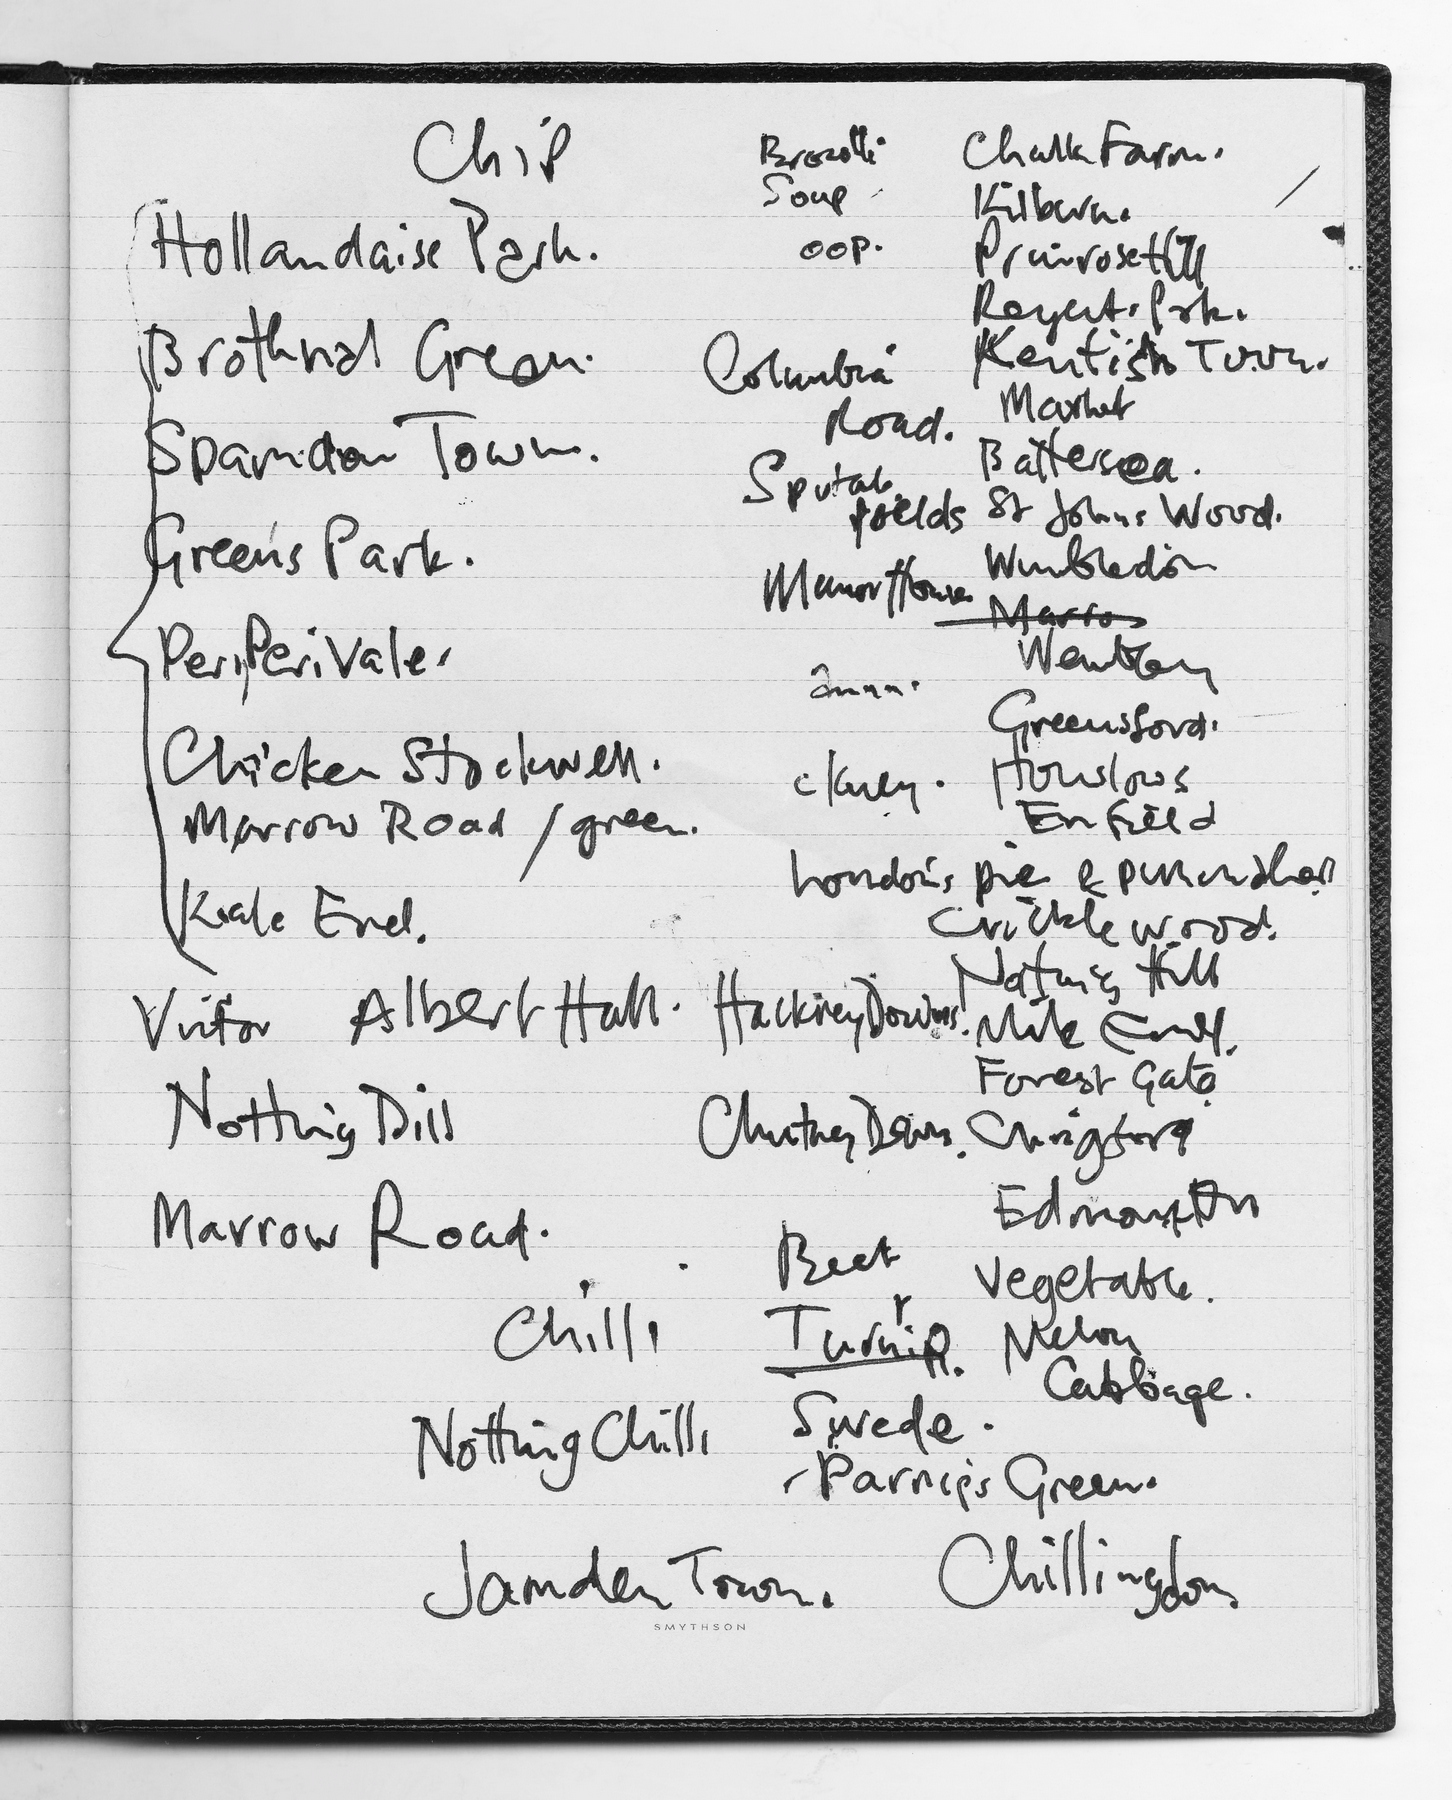 Chip
Hollandaise Park.
Brothnal Green.
Spamden Town.
Greens Park.
Peri Peri Vale.
Chicken Stockwell.
Marrow Road / green.
Kale End.
Albert Hall.
Nothing Dill
Marrow Road.
Chilli
Nothing Chilli
Jamden Town.
Brocolli
Soup
oop.
Columbia
Road.
Spital
fields
Manor House
ckney.
Hackney Downs.
Chutney Downs.
Beet
Turnip.
Swede.
Parnips Green.
Chalk Farm.
Kilburn.
Primrose Hill
Regents Prk.
Kentish Town.
Market
Battersea.
St Johns Wood.
Wimbledon
Marro
Wembley
Greensford.
Hounslows
Enfield
London's pie &
Cricklewood.
Notting Hill
Mile End.
Forest Gate
Chingford
Edmonton
Vegetable.
Melon
Cabbage.
Chillingdon.
SMYTHSON